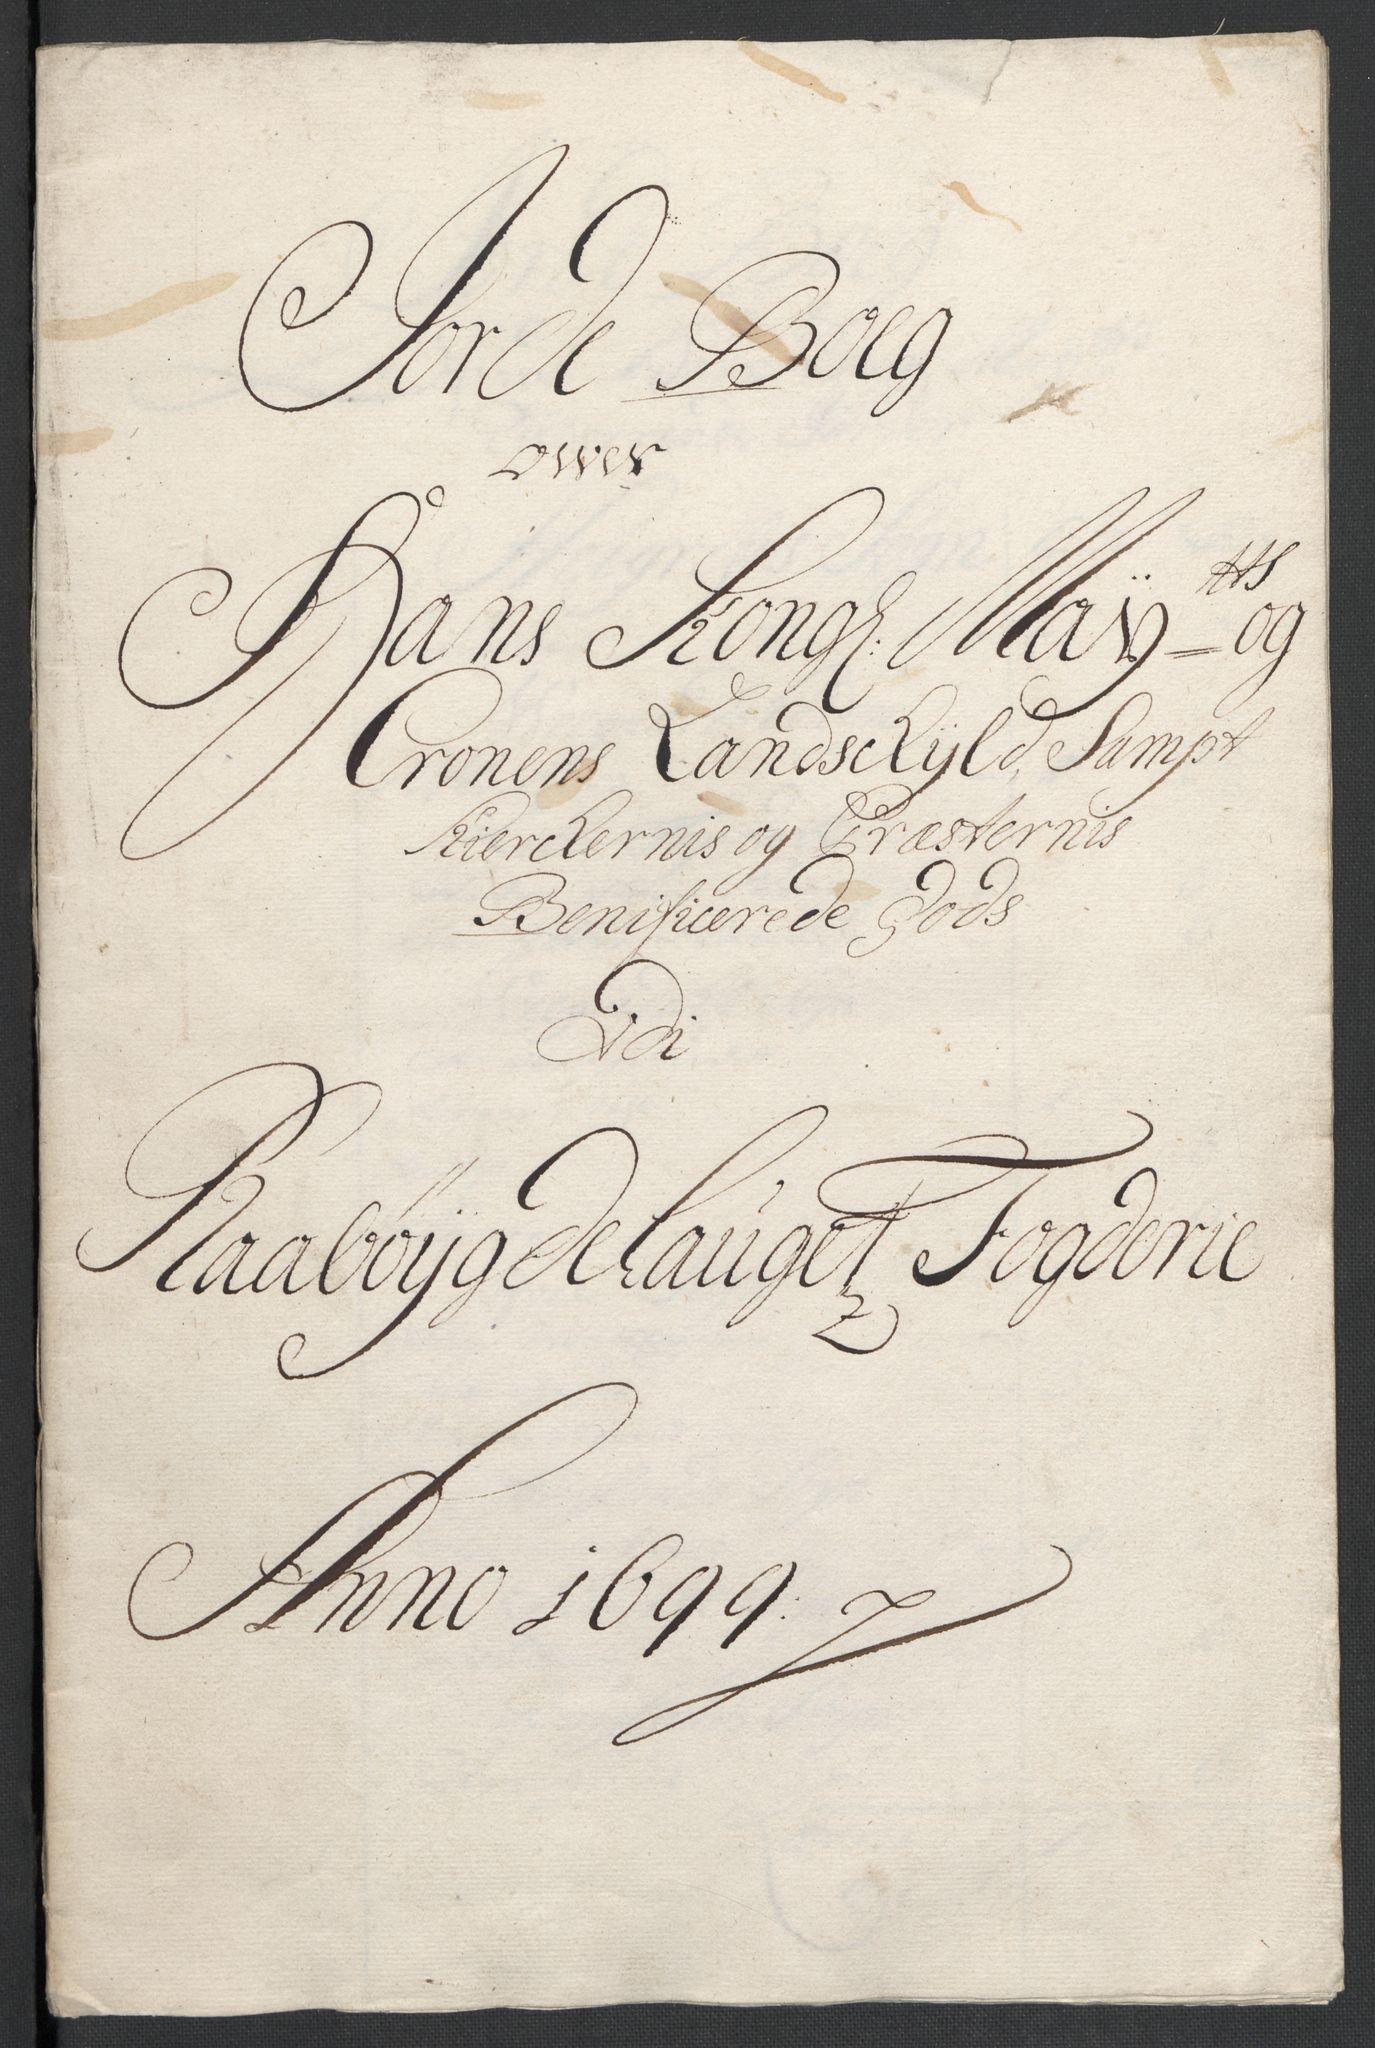 Jorde Boeg
over
Hans Kongl: Maÿtts og
Cronens Landsckyld, Sampt
Kierckernis og Præsternis
Benificerede Gods
Vdi
Raabÿgdelauget Fogderie
Anno 1699: